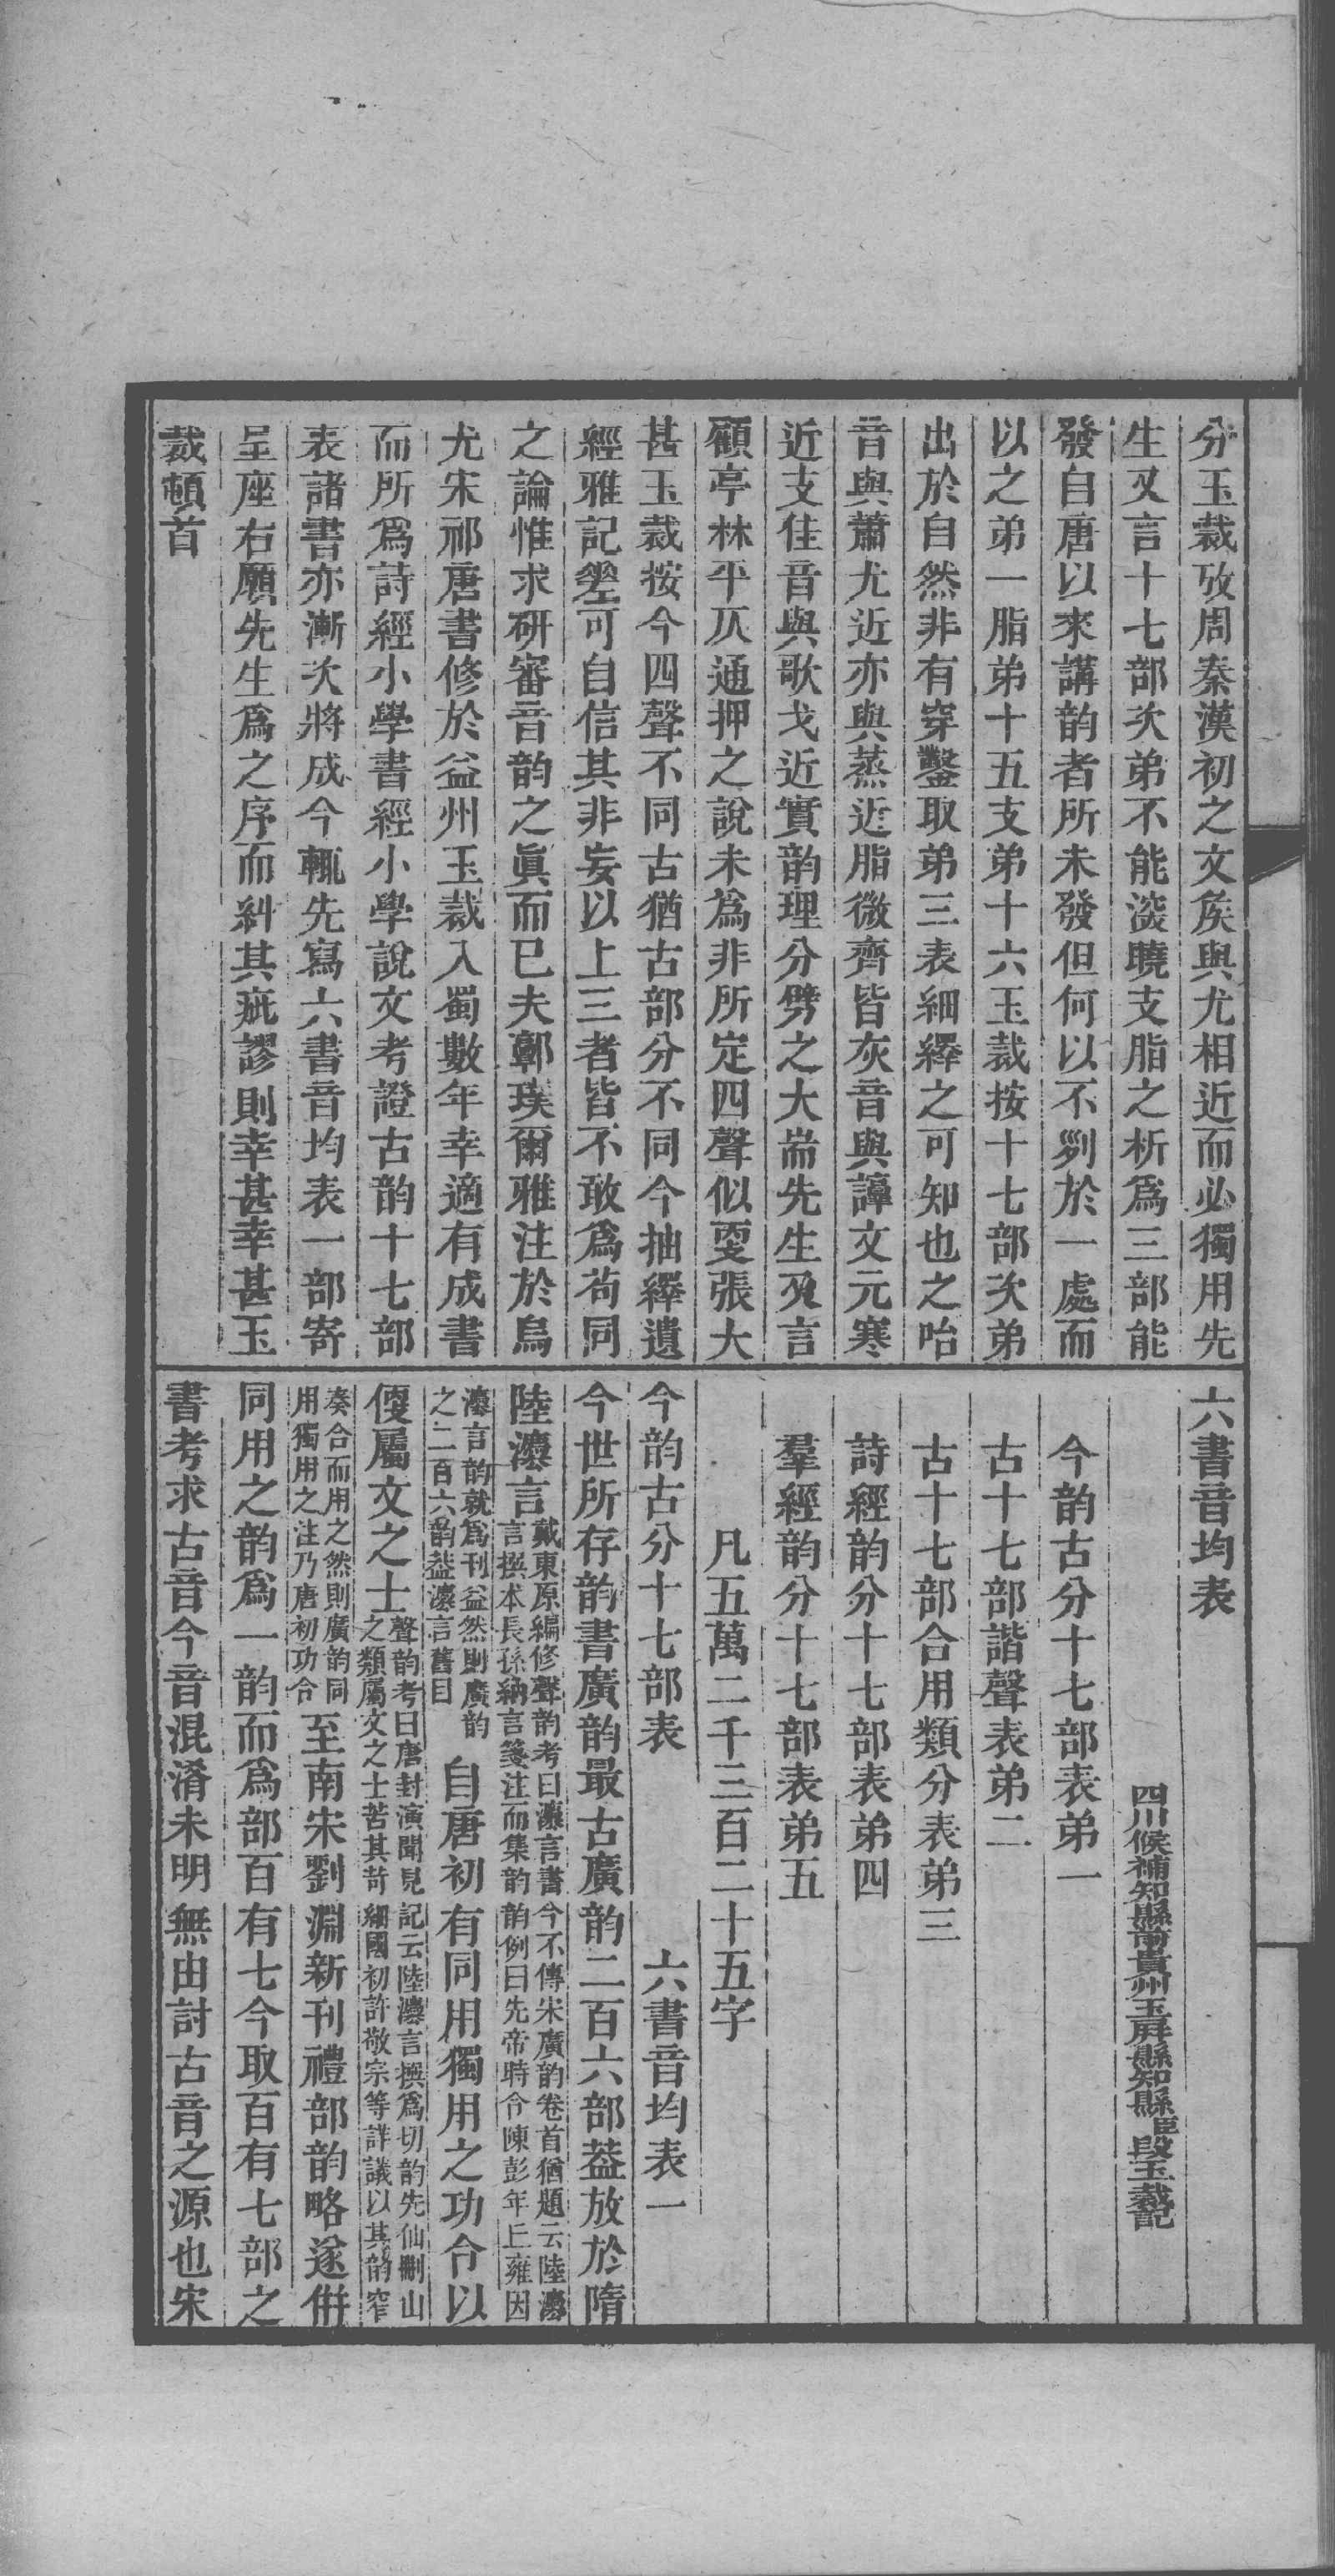 分玉裁攷周秦漢初之文矦與尤相近而必獨用先
生又言十七部次弟不能淡曉支脂之析爲三部能
發自唐以來講韵者所未發但何以不列於一處而
以之弟一脂弟十五支弟十六玉裁按十七部次弟
出於自然非有穿鑿取弟三表細繹之可知也之咍
音與蕭尤近亦與蒸近脂微齊皆灰音與諄文元寒
近支佳音與歌戈近實韵理分劈之大耑先生又言
顧亭林平仄通押之說未爲非所定四聲似更張大
甚玉裁按今四聲不同古猶古部分不同今抽繹遺
經雅記㢀可自信其非妄以上三者皆不敢爲苟同
之論惟求研審音韵之眞而已夫郭璞爾雅注於烏
尤宋祁唐書修於益州玉裁入蜀數年幸適有成書
而所爲詩經小學書經小學說文考證古韵十七部
表諸書亦漸次將成今輒先寫六書音均表一部寄
呈座右願先生爲之序而糾其疵謬則幸甚幸甚玉
裁頓首
六書音均表
四川候補知縣前貴州玉屛縣知縣臣段玉裁記
今韵古分十七部表弟一
古十七部諧聲表弟二
古十七部合用類分表弟三
詩經韵分十七部表弟四
羣經韵分十七部表弟五
凡五萬二千三百二十五字
今韵古分十七部表 六書音均表一
今世所存韵書廣韵最古廣韵二百六部葢放於隋
陸灋言戴東原編修聲韵考曰灋言書今不傳宋廣韵卷首猶題云陸灋
言撰本長孫納言箋注而集韵韵例曰先帝時令陳彭年丘雍因
灋言韵就爲刊益然則廣韵
之二百六韵葢灋言舊目自唐初有同用獨用之功令以
便屬文之士聲韵考曰唐封演聞見記云陸灋言撰爲切韵先仙刪山
之類屬文之士苦其苛細國初許敬宗等詳議以其韵窄
奏合而用之然則廣韵同
用獨用之注乃唐初功令至南宋劉淵新刊禮部韵略遂併
同用之韵爲一韵而爲部百有七今取百有七部之
書考求古音今音混淆未明無由討古音之源也宋